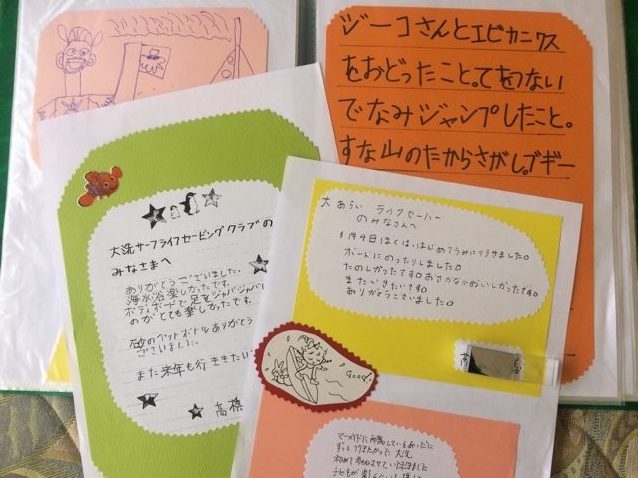 ジーコさんとエビカニクス
をおどったこと。てをつない
でなみジャンプしたこと。
すな山のたからさがし。ブギー
大洗サーフライフセービングクラブの
みなさまへ
ありがとうございました。
海水浴楽しかったです。
ボディボードで足をジャバジャバ
のが とても楽しかったです。
砂のペットボトルありがとう
ございました。
また来年も行ききたい
高橋
大あらい ライフセーバー
のみなさんへ
ぼくははじめてうみに行きました。
ボートにのったりしました。
たのしかったです。おさかながおいしかったです。
またいきたいです。
ありがとうございました。
Good!
マーメイドに所属しているあいだに
ずっと行きたかった大洗
初めて参加させていただきました